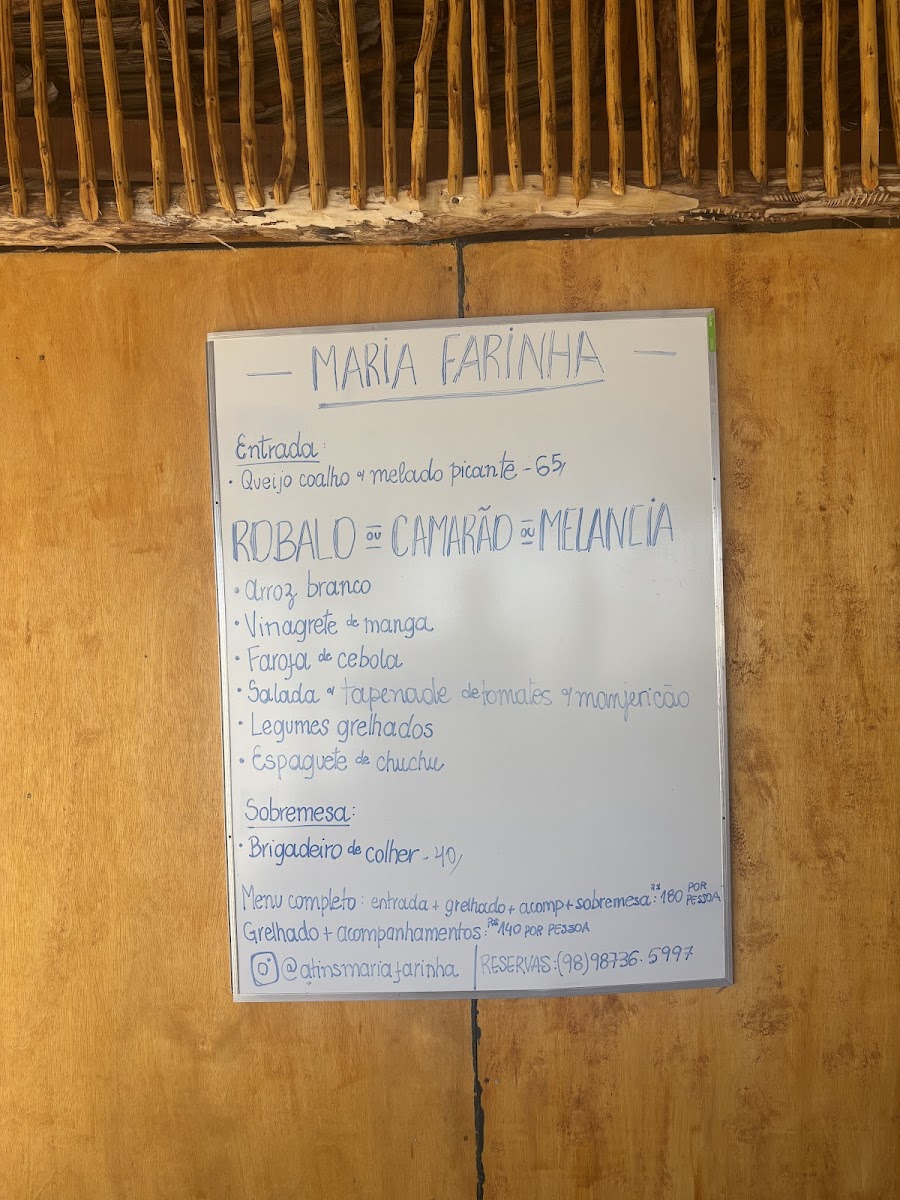 — MARIA FARINHA —
Entrada:
• Queijo coalho c/ melado picante - 65,
ROBALO OU CAMARÃO OU MELANCIA
• Arroz branco
• Vinagrete de manga
• Farofa de cebola
• Salada c/ tapenade de tomates c/ manjericão
• Legumes grelhados
• Espaguete de chuchu
Sobremesa:
• Brigadeiro de colher - 40,
Menu completo: entrada + grelhado + acomp + sobremesa: R$ 180 POR PESSOA
Grelhado + acompanhamentos: R$ 140 POR PESSOA
@atinsmariafarinha | RESERVAS: (98) 98736.5997